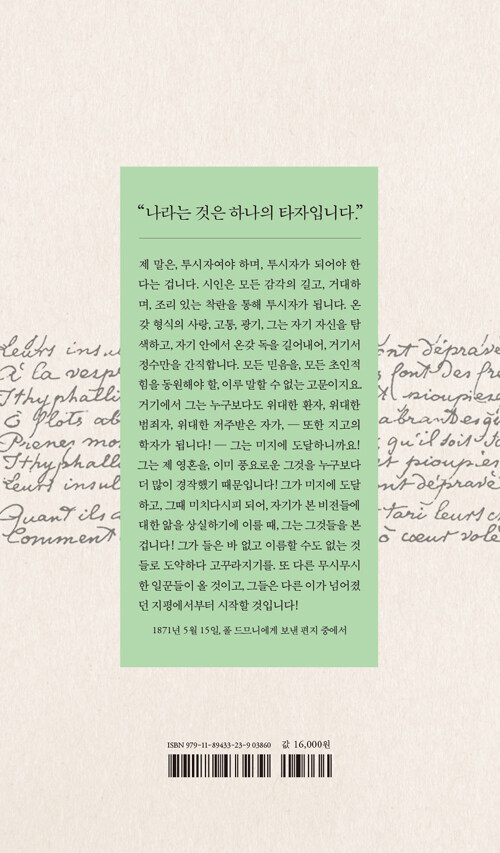 “나라는 것은 하나의 타자입니다.”
제 말은, 투시자여야 하며, 투시자가 되어야 한
다는 겁니다. 시인은 모든 감각의 길고, 거대하
며, 조리 있는 착란을 통해 투시자가 됩니다. 온
갖 형식의 사랑, 고통, 광기, 그는 자기 자신을 탐
색하고, 자기 안에서 온갖 독을 길어내어, 거기서
정수만을 간직합니다. 모든 믿음을, 모든 초인적
힘을 동원해야 할, 이루 말할 수 없는 고문이지요.
거기에서 그는 누구보다도 위대한 환자, 위대한
범죄자, 위대한 저주받은 자가, ― 또한 지고의
학자가 됩니다! ― 그는 미지에 도달하니까요!
그는 제 영혼을, 이미 풍요로운 그것을 누구보다
더 많이 경작했기 때문입니다! 그가 미지에 도달
하고, 그때 미치다시피 되어, 자기가 본 비전들에
대한 앎을 상실하기에 이를 때, 그는 그것들을 본
겁니다! 그가 들은 바 없고 이름할 수도 없는 것
들로 도약하다 고꾸라지기를. 또 다른 무시무시
한 일꾼들이 올 것이고, 그들은 다른 이가 넘어졌
던 지평에서부터 시작할 것입니다!
1871년 5월 15일, 폴 드므니에게 보낸 편지 중에서
Leurs insul
À la vespr
Ithyphalli
Ô flots abr
Prenez mo
Ithyphalli
Quand ils a
Comment
ont déprave
font des fre
pioupiese
abrandesqu
qu'il soit
et pioupies
tari leurs c
ô cœur volé
ISBN 979-11-89433-23-9 03860 값 16,000원